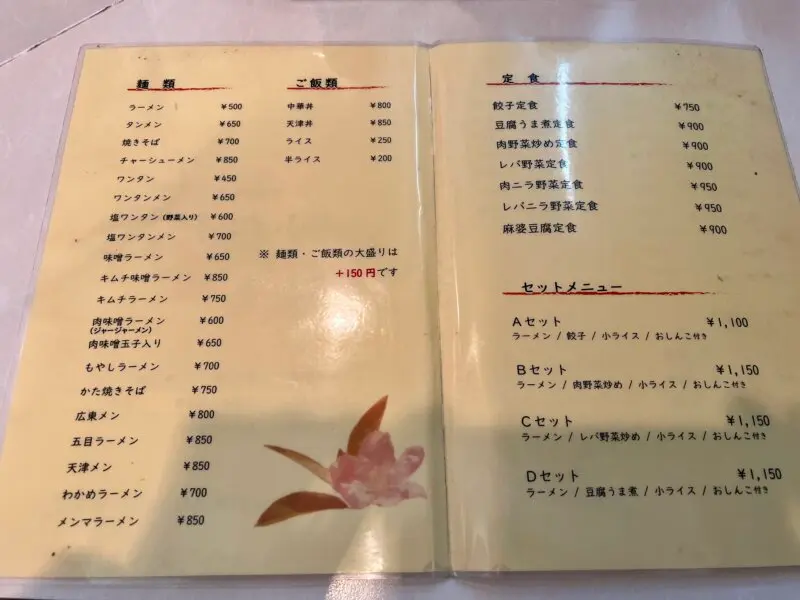 麺類
ラーメン ¥500
タンメン ¥650
焼きそば ¥700
チャーシューメン ¥850
ワンタン ¥450
ワンタンメン ¥650
塩ワンタン(野菜入り) ¥600
塩ワンタンメン ¥700
味噌ラーメン ¥650
キムチ味噌ラーメン ¥850
キムチラーメン ¥750
肉味噌ラーメン ¥600
(ジャージャーメン)
肉味噌玉子入り ¥650
もやしラーメン ¥700
かた焼きそば ¥750
広東メン ¥800
五目ラーメン ¥850
天津メン ¥850
わかめラーメン ¥700
メンマラーメン ¥850
ご飯類
中華丼 ¥800
天津丼 ¥850
ライス ¥250
半ライス ¥200
※ 麺類・ご飯類の大盛りは
+150円です
定食
餃子定食 ¥750
豆腐うま煮定食 ¥900
肉野菜炒め定食 ¥900
レバ野菜定食 ¥900
肉ニラ野菜定食 ¥950
レバニラ野菜定食 ¥950
麻婆豆腐定食 ¥900
セットメニュー
Aセット ¥1,100
ラーメン / 餃子 / 小ライス / おしんこ付き
Bセット ¥1,150
ラーメン / 肉野菜炒め / 小ライス / おしんこ付き
Cセット ¥1,150
ラーメン / レバ野菜炒め / 小ライス / おしんこ付き
Dセット ¥1,150
ラーメン / 豆腐うま煮 / 小ライス / おしんこ付き